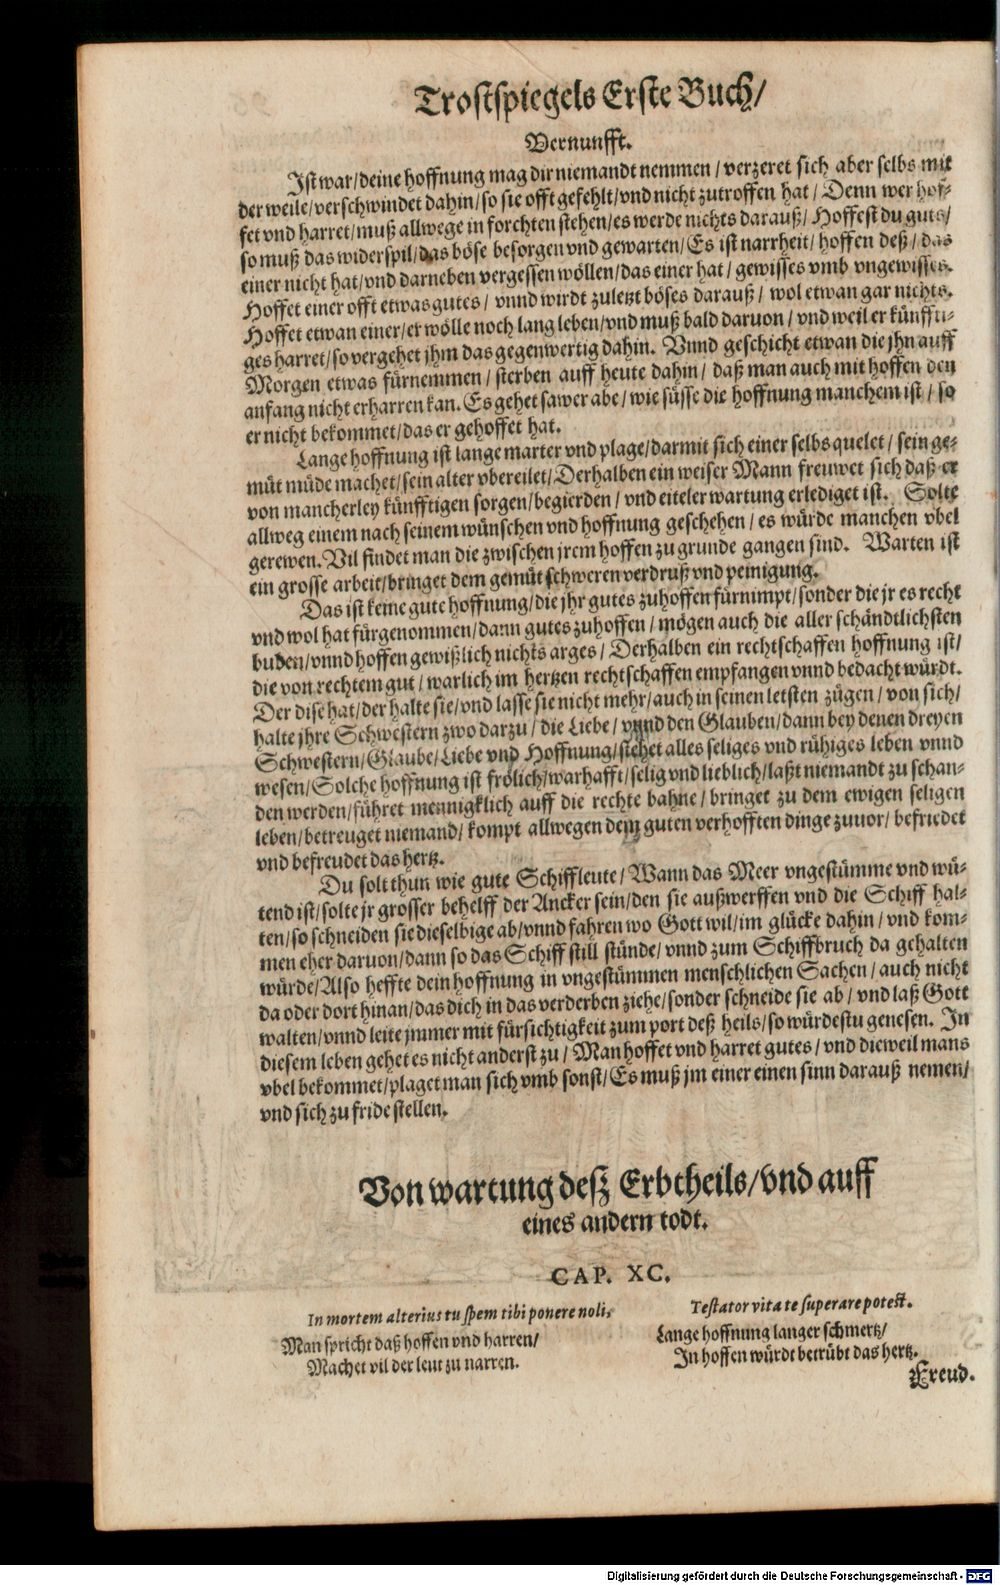 Trostspiegels Erste Buch/
Vernunfft.
Ist war/deine hoffnung mag dir niemandt nemmen/verzeret sich aber selbs mit
der weile/verschwindet dahin/so sie offt gefehlt/vnd nicht zutroffen hat/Denn wer hof-
fet vnd harret/muß allwege in forchten stehen/es werde nichts darauß/Hoffest du guts/
so muß das widerspil/das böse besorgen vnd gewarten/Es ist narrheit/hoffen deß/das
einer nicht hat/vnd darneben vergessen wöllen/das einer hat/gewisses vmb vngewisses.
Hoffet einer offt etwas gutes/vnnd wirdt zuletzt böses darauß/wol etwan gar nichts.
Hoffet etwan einer/er wölle noch lang leben/vnd muß bald daruon/vnd weil er künffti-
ges harret/so vergehet jhm das gegenwertig dahin. Vnnd geschicht etwan die jhn auff
Morgen etwas fürnemmen/sterben auff heute dahin/daß man auch mit hoffen den
anfang nicht erharren kan. Es gehet sawer abe/wie süsse die hoffnung manchem ist/so
er nicht bekommet/das er gehoffet hat.
Lange hoffnung ist lange marter vnd plage/darmit sich einer selbs quelet/sein ge-
müt müde machet/sein alter vbereilet/Derhalben ein weiser Mann freuwet sich daß er
von mancherley künfftigen sorgen/begierden/vnd eiteler wartung erlediget ist. Solte
allweg einem nach seinem wünschen vnd hoffnung geschehen/es würde manchen vbel
gerewen. Vil findet man die zwischen jrem hoffen zu grunde gangen sind. Warten ist
ein grosse arbeit/bringet dem gemüt schweren verdruß vnd peinigung.
Das ist keine gute hoffnung/die jhr gutes zuhoffen fürnimpt/sonder die jr es recht
vnd wol hat fürgenommen/dann gutes zuhoffen/mögen auch die aller schändtlichsten
buben/vnnd hoffen gewißlich nichts arges/Derhalben ein rechtschaffen hoffnung ist/
die von rechtem gut/warlich im hertzen rechtschaffen empfangen vnnd bedacht würdt.
Der dise hat/der halte sie/vnd lasse sie nicht mehr/auch in seinen letsten zügen/von sich/
halte jhre Schwestern zwo darzu/die Liebe/vnnd den Glauben/dann bey denen dreyen
Schwestern/Glaube/Liebe vnd Hoffnung/stehet alles seliges vnd rühiges leben vnnd
wesen/Solche hoffnung ist frölich/warhafft/selig vnd lieblich/laßt niemandt zu schan-
den werden/führet mennigklich auff die rechte bahne/bringet zu dem ewigen seligen
leben/betreuget niemand/kompt allwegen dem guten verhofften dinge zuuor/befriedet
vnd befreudet das hertz.
Du solt thun wie gute Schiffleute/Wann das Meer vngestümme vnd wü-
tend ist/solte jr grosser behelff der Ancker sein/den sie außwerffen vnd die Schiff hal-
ten/so schneiden sie dieselbige ab/vnnd fahren wo Gott wil/im glücke dahin/vnd kom-
men eher daruon/dann so das Schiff still stünde/vnnd zum Schiffbruch da gehalten
würde/Also heffte dein hoffnung in vngestümmen menschlichen Sachen/auch nicht
da oder dort hinan/das dich in das verderben ziehe/sonder schneide sie ab/vnd laß Gott
walten/vnnd leite jmmer mit fürsichtigkeit zum port deß heils/so würdestu genesen. In
diesem leben gehet es nicht anderst zu/Man hoffet vnd harret gutes/vnd dieweil mans
vbel bekommet/plaget man sich vmb sonst/Es muß jm einer einen sinn darauß nemen/
vnd sich zu fride stellen.
Von wartung deß Erbtheils/vnd auff
eines andern todt.
CAP. XC.
In mortem alterius tu spem tibi ponere noli,
Man spricht daß hoffen vnd harren/
Machet vil der leut zu narren.
Testator vita te superare potest.
Lange hoffnung langer schmertz/
In hoffen würdt betrübt das hertz.
Freud.
Digitalisierung gefördert durch die Deutsche Forschungsgemeinschaft - DFG